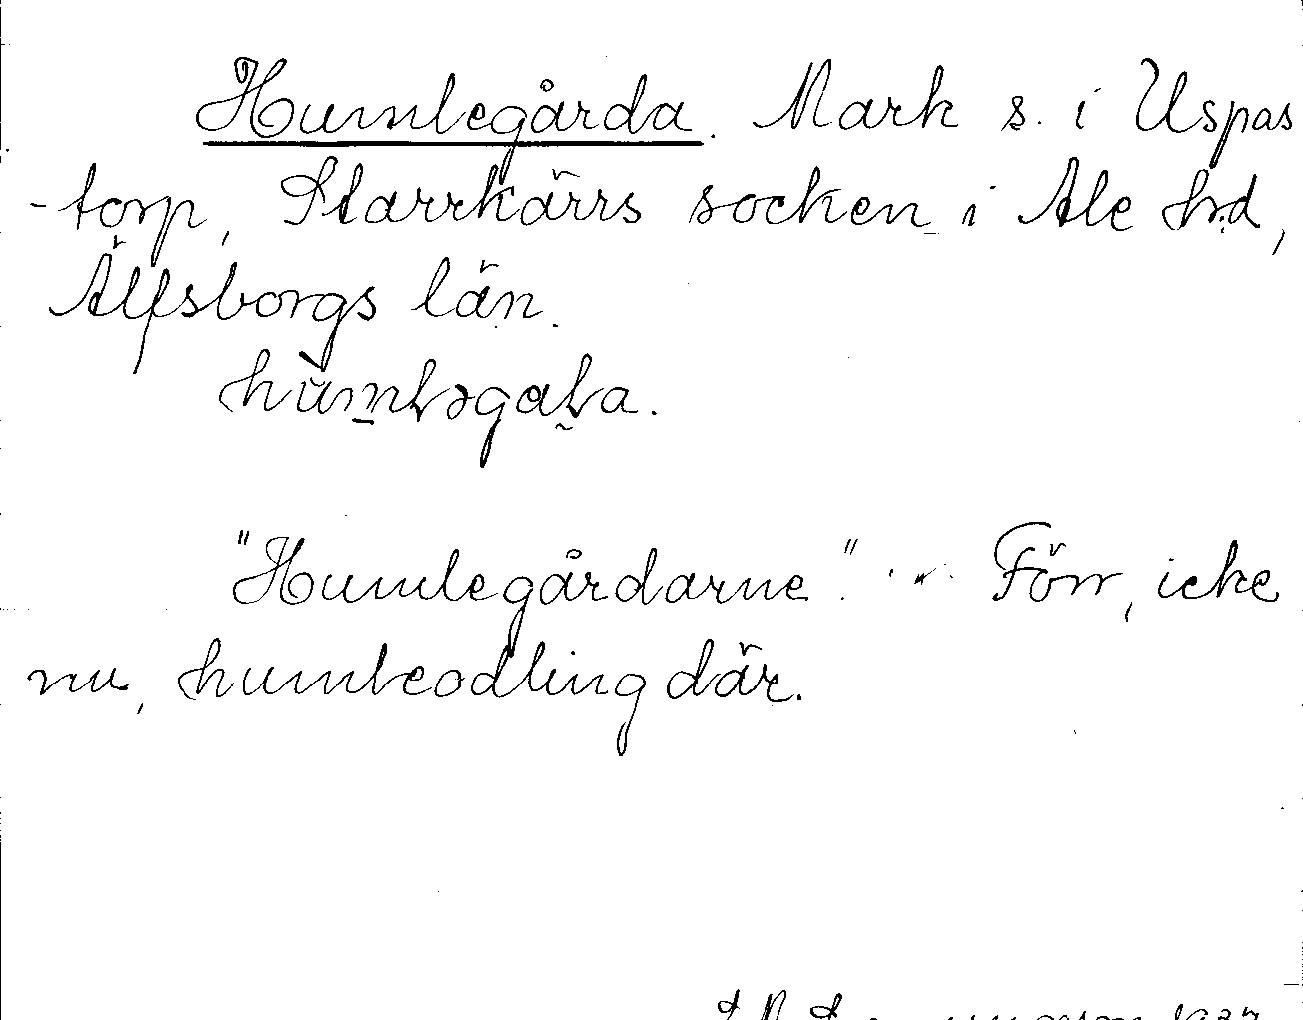 Humlegårda. Mark s. i Uspas
-torp, Starrkärrs socken i Ale hrd,
Älfsborgs län.
hùml̥əgaɽa.
"Humlegårdarne". Förr, icke
nu, humleodling där.